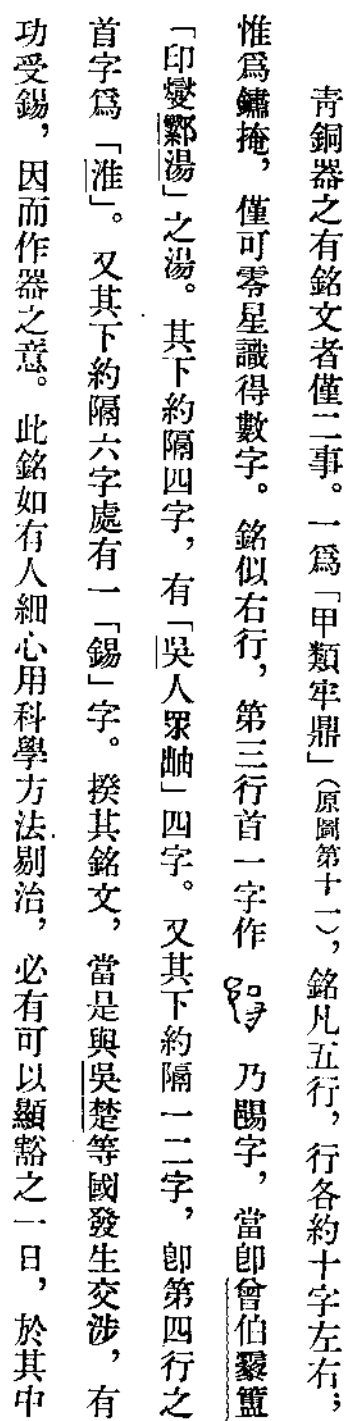 靑銅器之有銘文者僅二事。一爲「甲類牢鼎」（原圖第十一），銘凡五行，行各約十字左右；
惟爲鏽掩，僅可零星識得數字。銘似右行，第三行首一字作 乃鍚字，當卽曾伯霥簠
「印燮鄝湯」之湯。其下約隔四字，有「吳人眔」四字。又其下約隔一二字，卽第四行之
首字爲「淮」。又其下約隔六字處有一「錫」字。揆其銘文，當是與吳楚等國發生交涉，有
功受錫，因而作器之意。此銘如有人細心用科學方法剔治，必有可以顯豁之一日，於其中